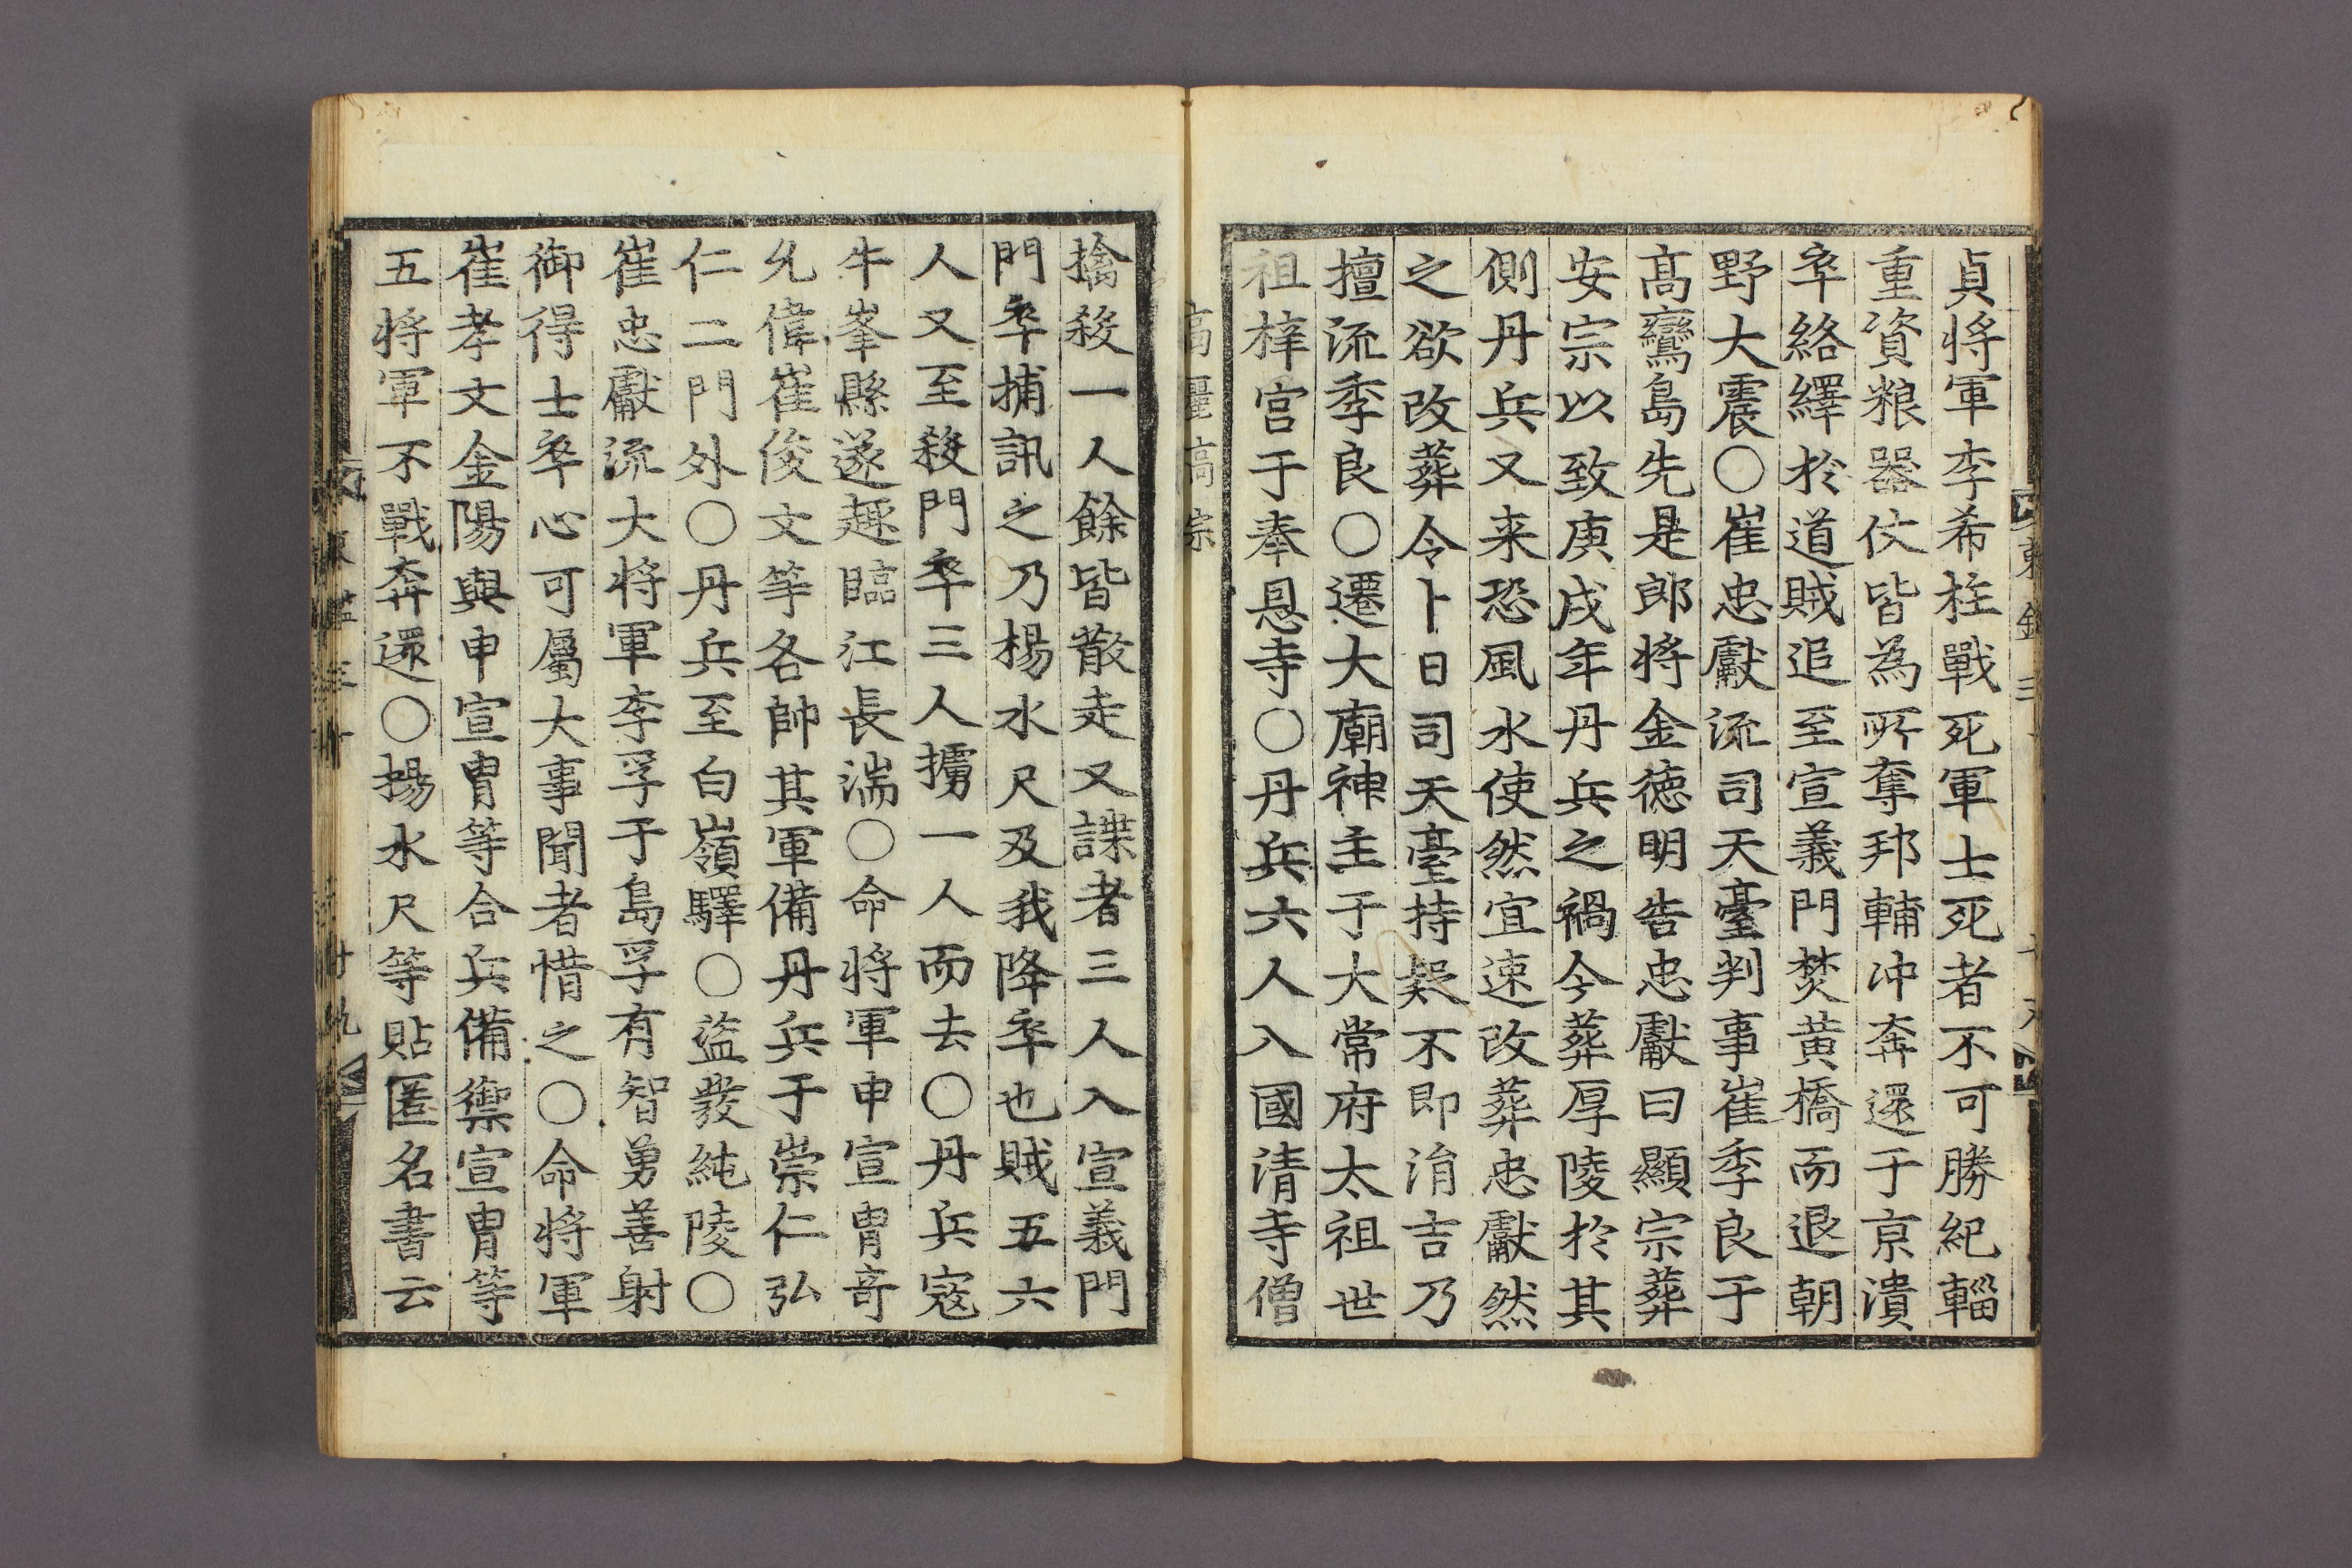 貞将軍李希柱戰死軍士死者不可勝紀輜
重資粮器仗皆為所奪邦輔冲奔還于京潰
卒絡繹於道賊追至宣義門焚黄橋而退朝
野大震○崔忠獻流司天臺判事崔季良于
髙鸞島先是郎将金徳明告忠獻曰顯宗葬
安宗以致庚戌年丹兵之禍今葬厚陵於其
側丹兵又来恐風水使然宜速改葬忠獻然
之欲改葬令卜日司天臺持疑不即涓吉乃
擅流季良○遷大廟神主于大常府太祖世
祖梓宫于奉恩寺○丹兵六人入國清寺僧
擒殺一人餘皆散走又諜者三人入宣義門
門卒捕訊之乃楊水尺及我降卒也賊五六
人又至殺門卒三人擄一人而去○丹兵寇
牛峯縣遂趣臨江長湍○命将軍申宣胄竒
允偉崔俊文等各帥其軍備丹兵于崇仁弘
仁二門外○丹兵至白嶺驛○盗發純陵○
崔忠獻流大将軍李孚于島孚有智勇善射
御得士卒心可屬大事聞者惜之○命将軍
崔孝文金陽與申宣胄等合兵備禦宣胄等
五将軍不戰奔還○楊水尺等貼匿名書云
高麗高宗
東鑑三十 廿九